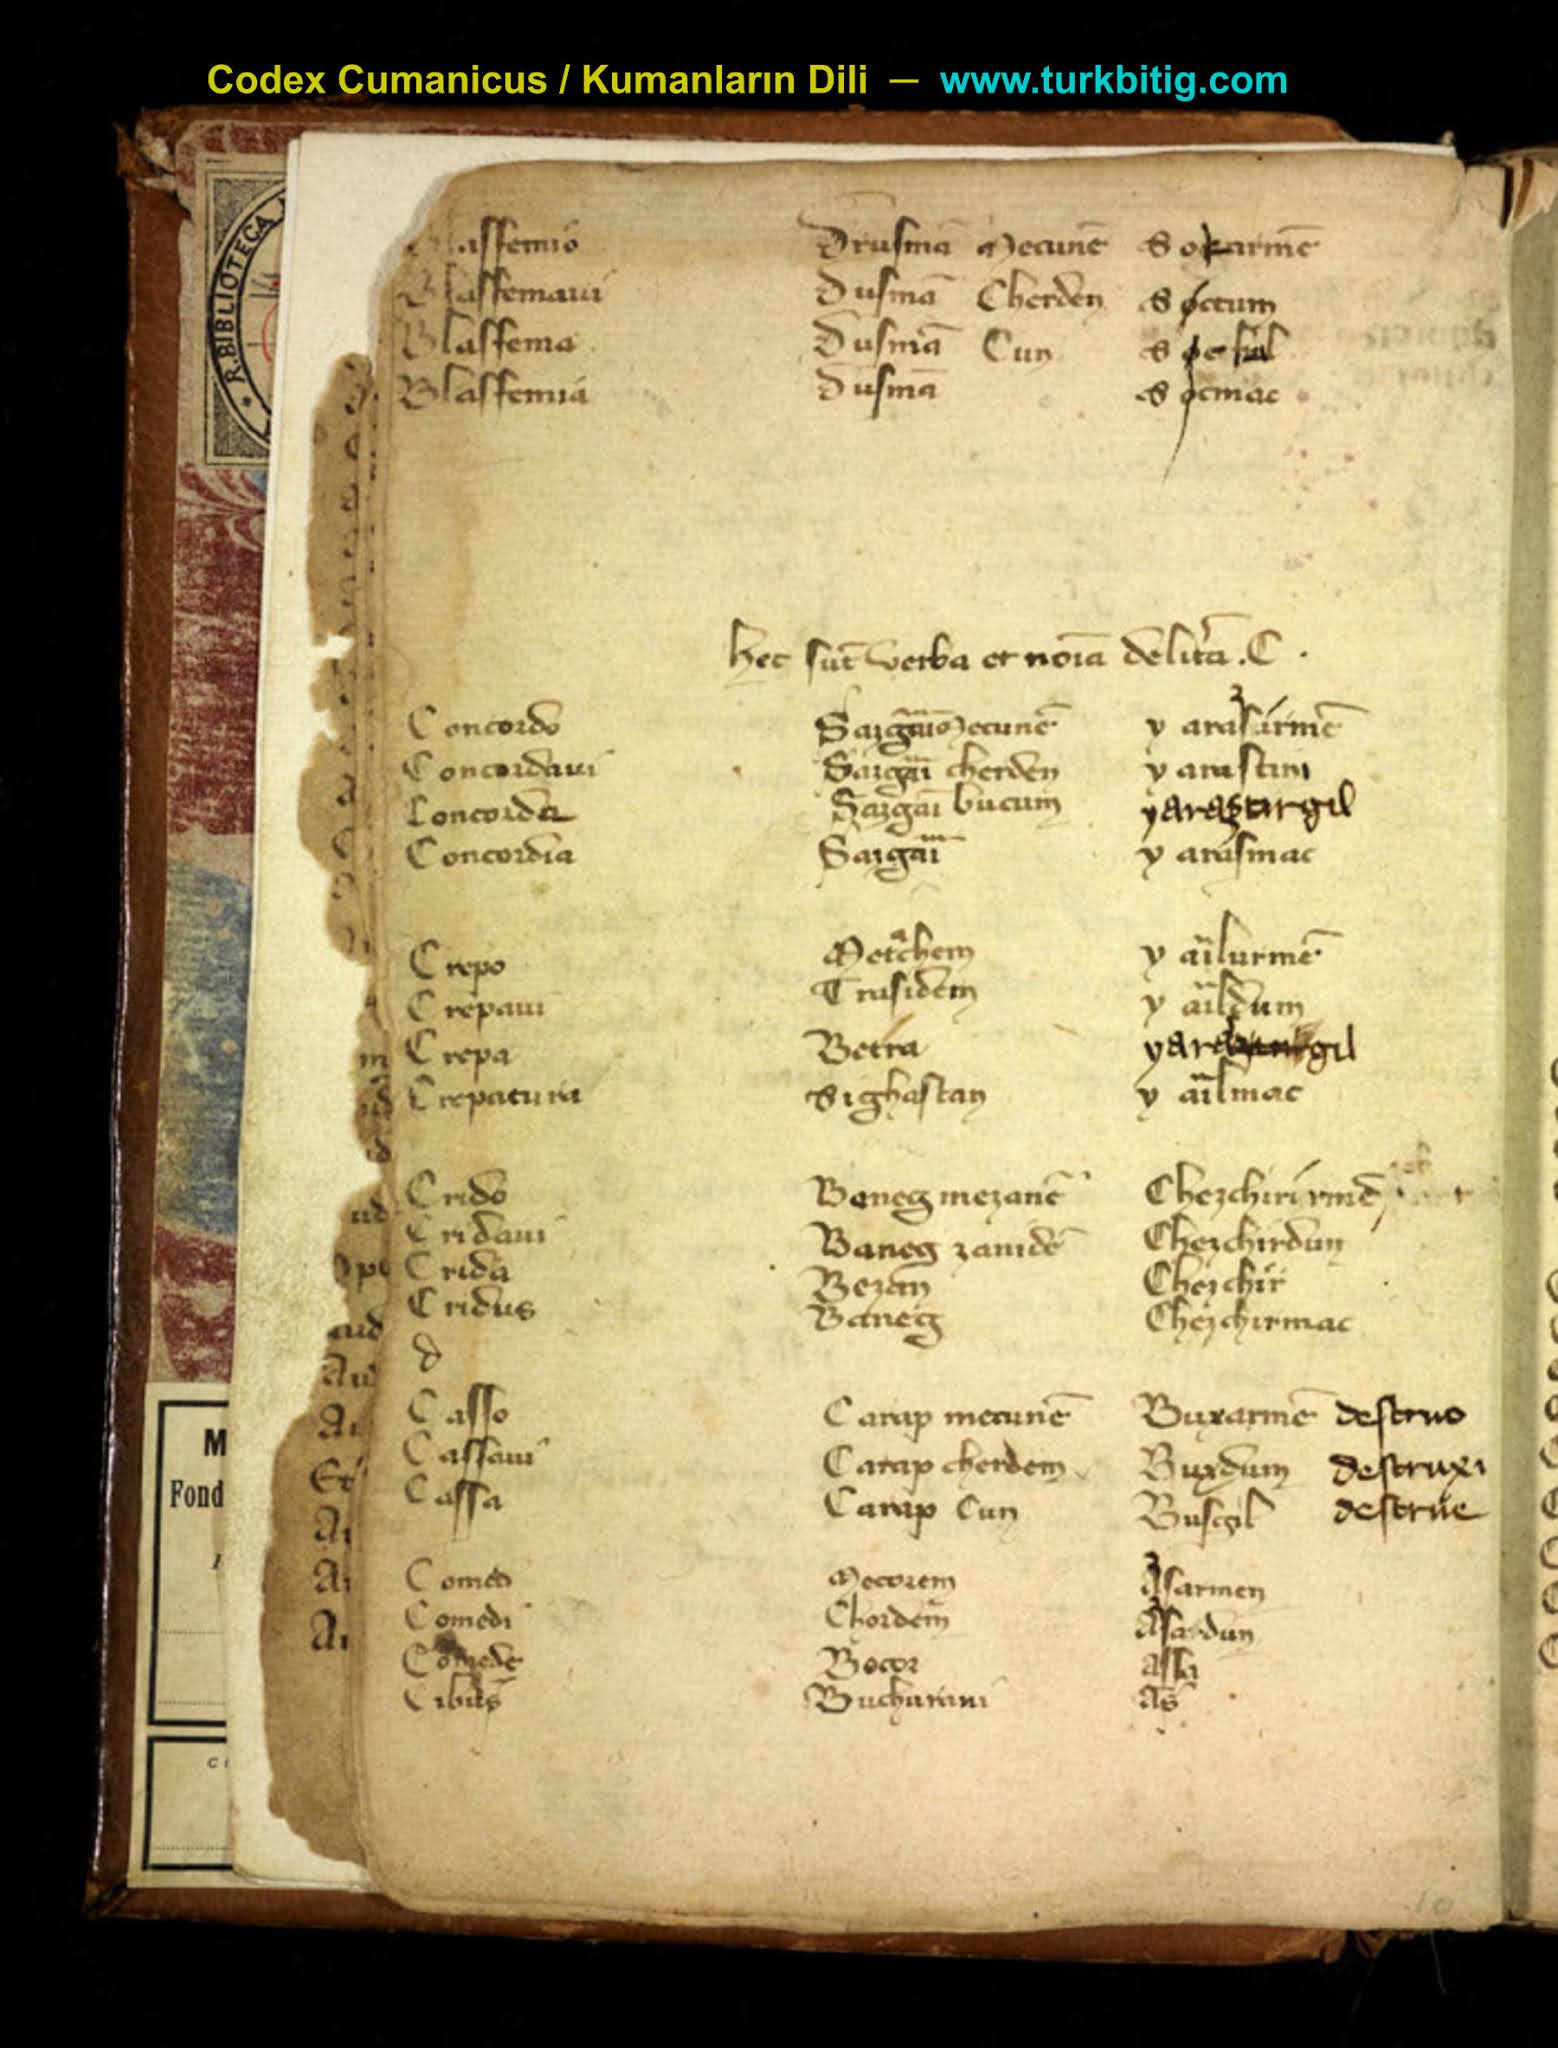 Codex Cumanicus / Kumanların Dili — www.turkbitig.com
R. BIBLIOTECA
Blasfemio Drusmā Mecunē Sokarmē
Blasfemaui Dusmā Cherden Soctum
Blasfema Dusmā Cun
Blasfemia Dusmā Socmac
hec sūt verba et noīa de litīa .C.
Concordo Mecunē yarasurmē
Concordaui cherden yarastim
Concorda bucum yarasturgil
Concordia yarasmac
Crepo Metrachem y aīlurmē
Crepaui Trasidem y aīldum
Crepa Betra
Crepatura Sighastan y aīlmac
Crido Baneg mezanē Chezchirirmē
Cridaui Baneg zanidē Chezchirdum
Crida Bezan Chezchir
Cridus Baneg Chezchirmac
Casso Carap mecunē Buxarmē destruo
Cassaui Carap cherdem Buxdum destruxi
Cassa Carap Cun Buscgil destrue
Comedo Mecorem Asarmen
Comedi Chordem Asardun
Comede Bocor assa
Cibus Buchurani As
M
Fond
10